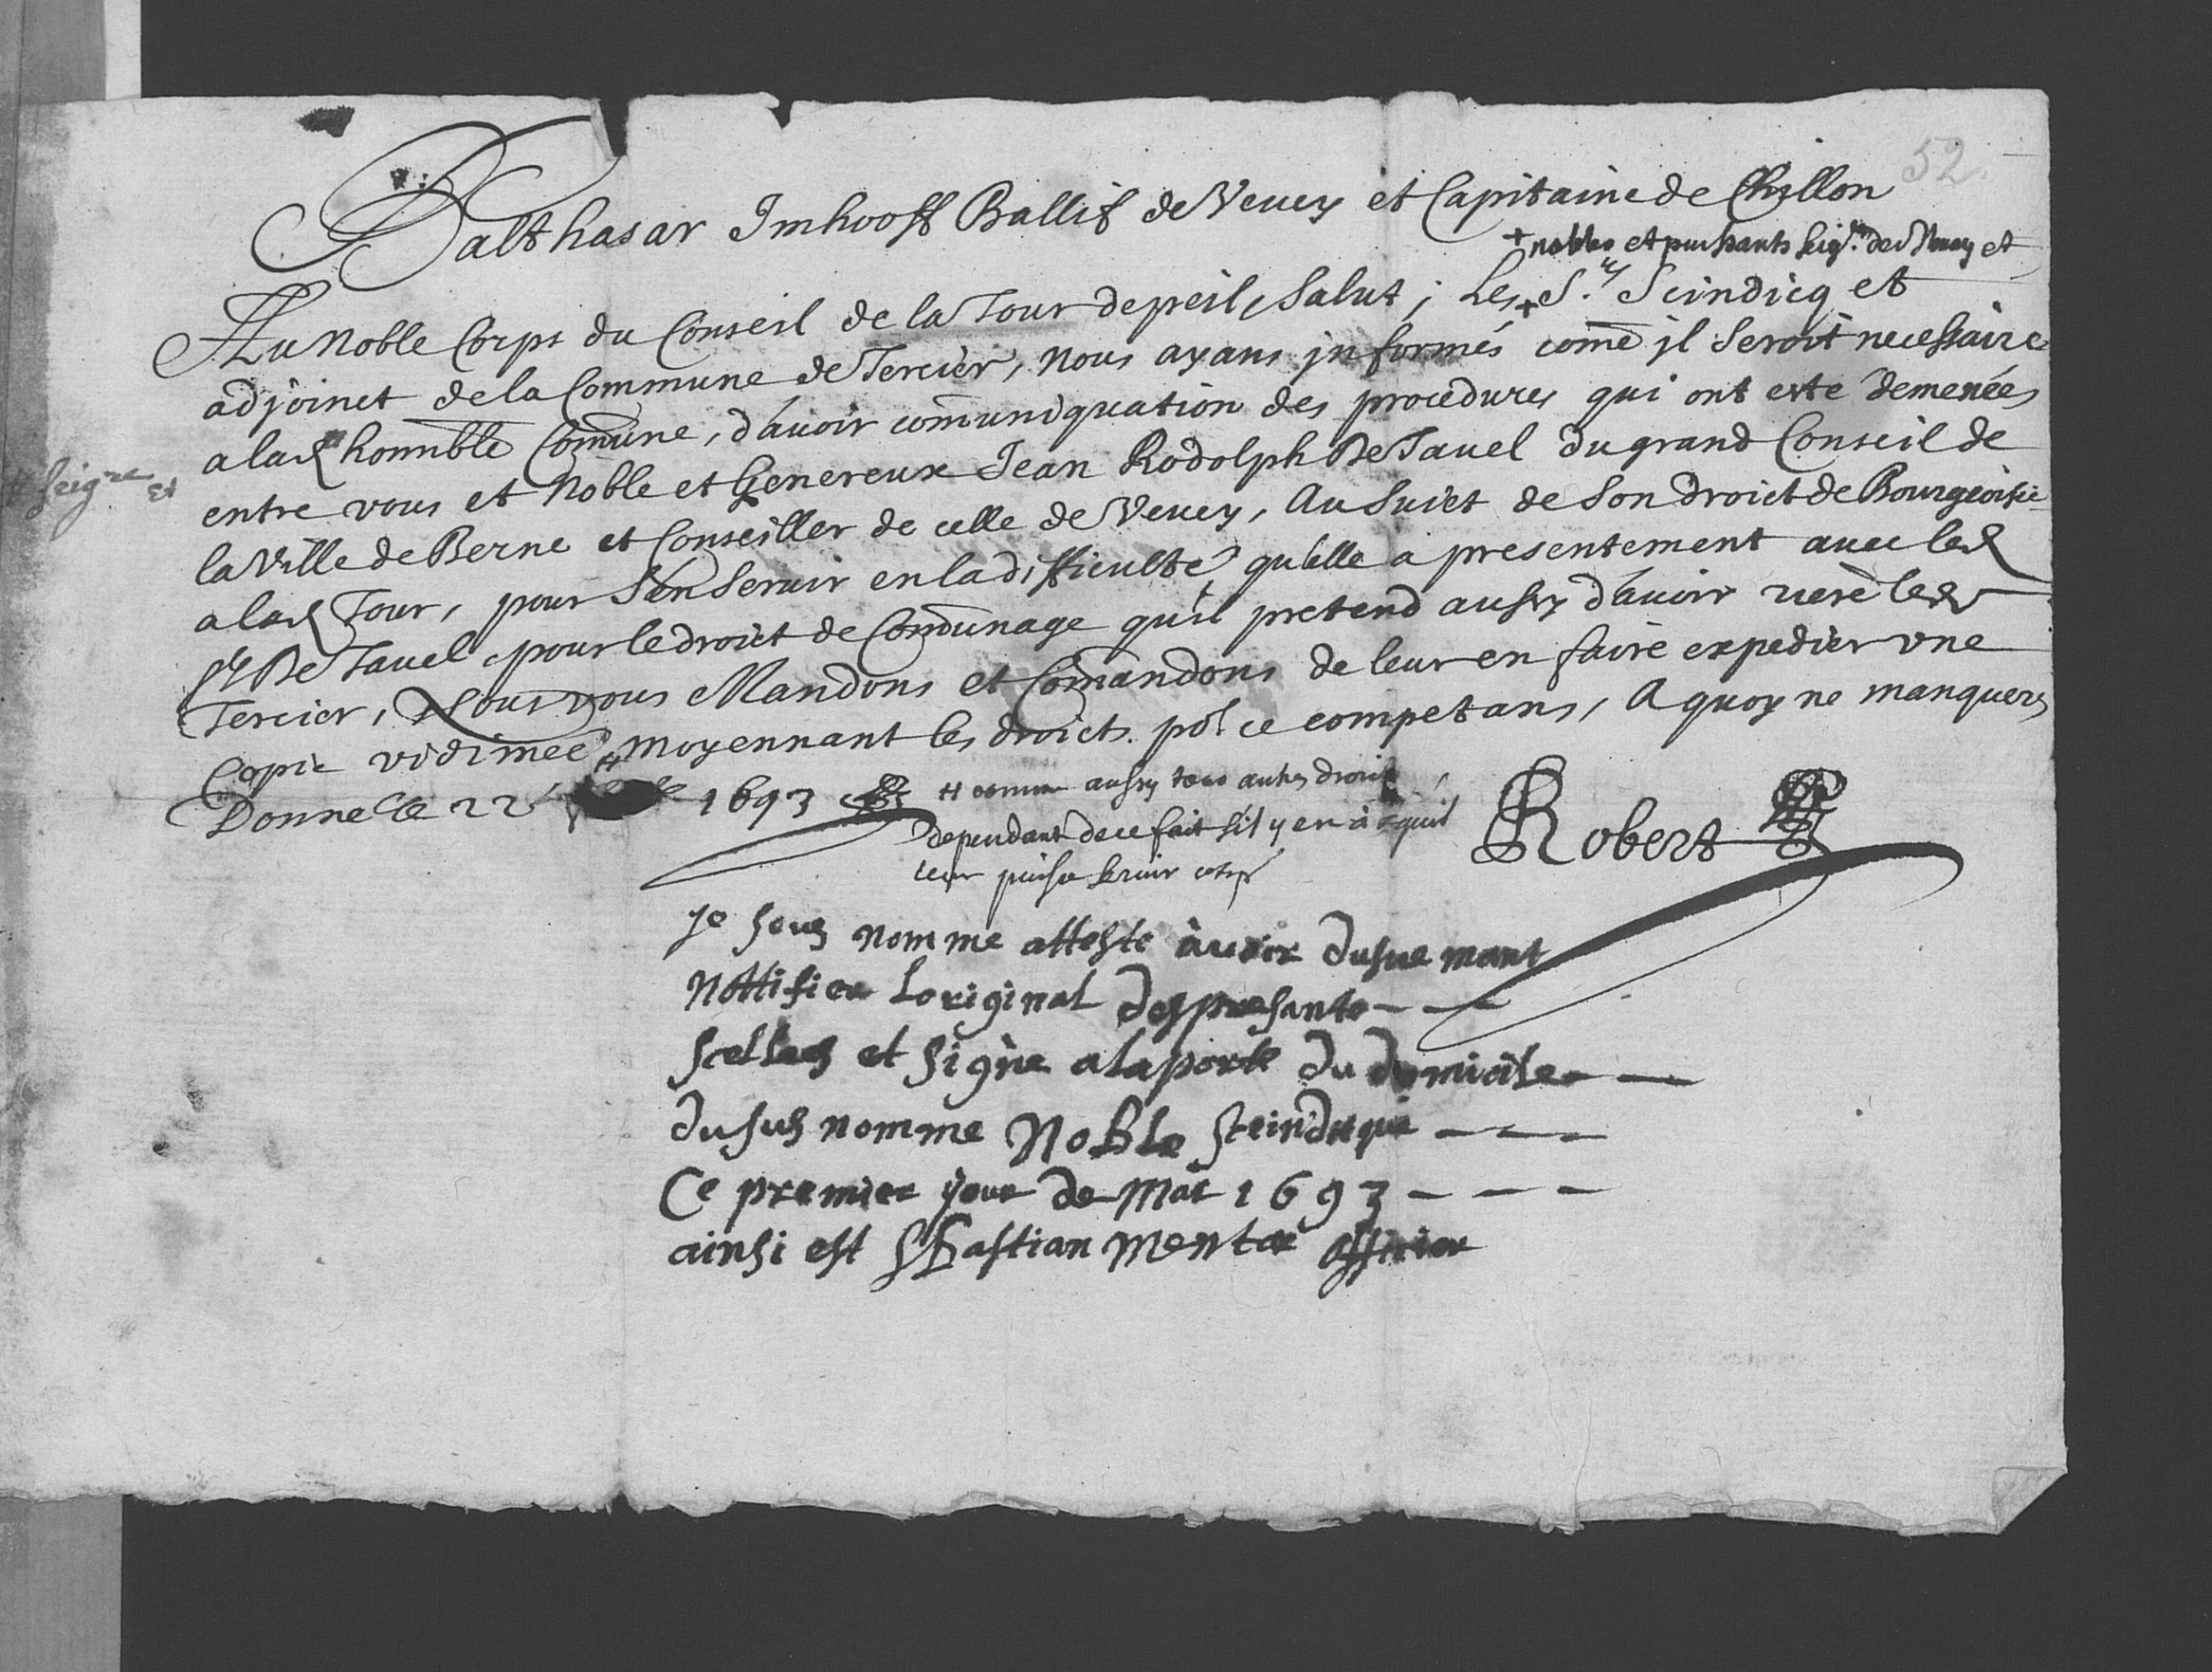 52.
Balthasar Imhooff Ballif de Vevey et Capitaine de Chillon
+ nobles et puissants seig.rs de Vevey et
Au Noble Corps du Conseil de la Tour de peil, Salut ; Les + S.rs Scindicq et
adjoinct de la Commune de Tercier, nous ayans jnformés com̄e jl seroit necessaire
a lad honnble Com̄une, d'avoir com̄uniquation des procedures qui ont esté demenées
entre vous et Noble et Genereux Jean Rodolph De Tavel du grand Conseil de
# seigre et
la Ville de Berne et Conseiller de celle de Vevey, Au Suiet de Son droict de Bourgeoisie
a lad Tour, pour S'en Servir en la difficulté qu'elle a presentement avec led
Sr De Tavel pour le droict de Com̄unage qu'il pretend aussy d'avoir riere led
Tercier, Nous vous Mandons et Com̄andons de leur en faire expedier vne
Copie vidimée # moyennant les droicts po.r ce competans, A quoy ne manquerez
Donne ce 22 1693
# comme aussy tous autres droits
dependant de ce fait s'il y en à & quil
leur puisse servir
Robert
Je sous nomme atteste àvoir duhue mant
Nottifier Loriginal des presante - - -
scellees et signe a la porte du domicile - -
dusus nomme Noble sceindique - - -
Ce premier jour de Mai 1693 - - -
ainsi est Sbastian Mentar officier